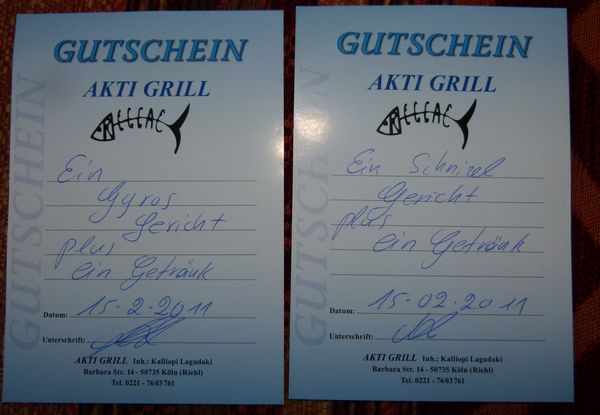 GUTSCHEIN
GUTSCHEIN
AKTI GRILL
Ein
Gyros
Gericht
plus
ein Getränk
Datum: 15-2-2011
Unterschrift:
AKTI GRILL Inh.: Kalliopi Lagudaki
Barbara Str. 14 - 50735 Köln (Riehl)
Tel. 0221 - 7603761
GUTSCHEIN
GUTSCHEIN
AKTI GRILL
Ein Schnizel
Gericht
plus
ein Getränk
Datum: 15-02-2011
Unterschrift:
AKTI GRILL Inh.: Kalliopi Lagudaki
Barbara Str. 14 - 50735 Köln (Riehl)
Tel. 0221 - 7603761